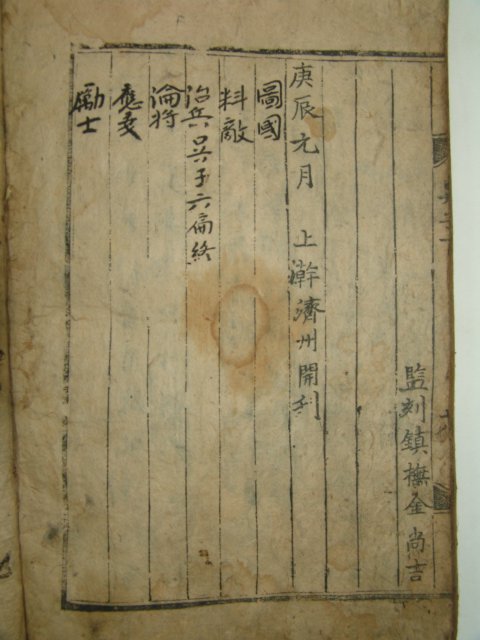 監刻鎮撫金尚吉
庚辰元月 上澣濟州開刊
圖國
料敵
治兵 吳子六扁終
論將
應変
勵士